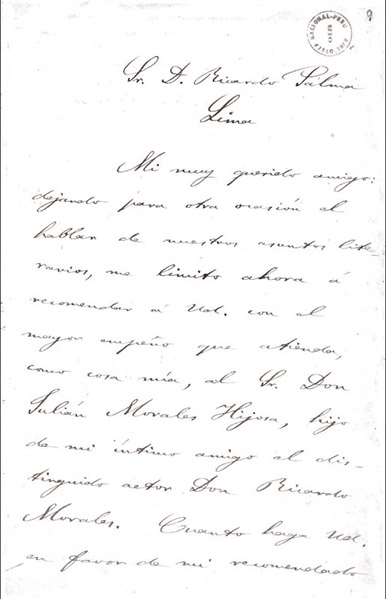 8
Sr. D. Ricardo Palma
Lima
Mi muy querido amigo:
dejando para otra ocasión el
hablar de nuestros asuntos lite-
rarios, me limito ahora á
recomendar á Ud. con el
mayor empeño que atienda,
como cosa mía, al Sr. Don
Julián Morales Hijosa, hijo
de mi íntimo amigo el dis-
tinguido actor Don Ricardo
Morales. Cuanto haga Ud.
en favor de mi recomendado